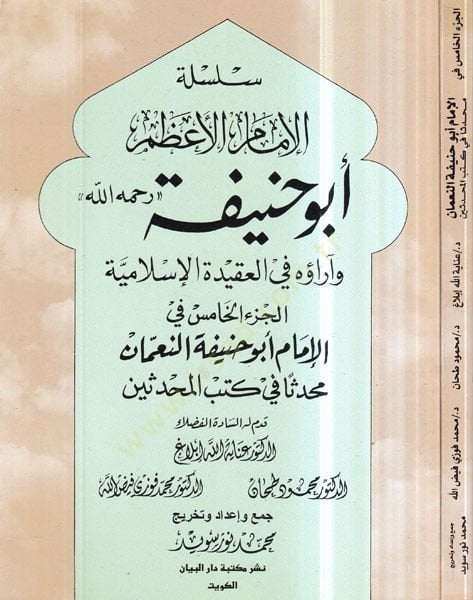 سلسلة
الإمام الأعظم
أبو حنيفة «رحمه الله»
وآراؤه في العقيدة الإسلامية
الجزء الخامس في
الإمام أبو حنيفة النعمان
محدثًا في كتب المحدثين
قدم له السادة الفضلاء
الدكتور عناية الله إبلاغ
الدكتور محمود طحان الدكتور محمد فوزي فيض الله
جمع وإعداد وتخريج
محمد نور سويد
نشر مكتبة دار البيان
الكويت
الجزء الخامس في
الإمام أبو حنيفة النعمان
محدثا في كتب المحدثين
د./عناية الله إبلاغ
د./محمود طحان
د./محمد فوزي فيض الله
جمع وإعداد وتخريج
محمد نور سويد